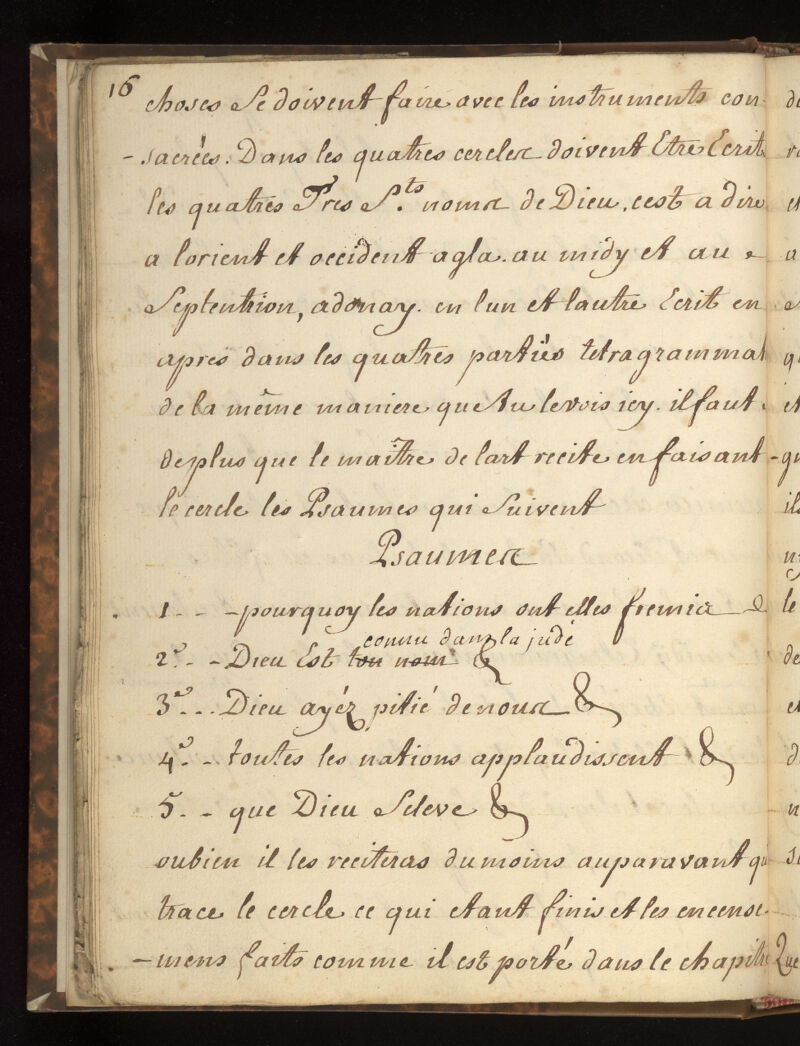 16
choses Se doivent faire avec les instruments con
- sacrées. Dans les quatres cercles doivent Etre Ecrit
les quatres Tres S.ts noms de Dieu, cest a dire
a lorient et occident agla. au midy et au
Septentrion, adonay. en lun et lautre Ecrit en
apres dans les quatres parties tetragrammat
de la même maniere que tu le vois icy. il faut
de plus que le maître de lart recite en faisant
le cercle les Psaumes qui Suivent
Psaumes
1 - - - pourquoy les nations ont elles fremis &
connu dans la judé
2e. - - Dieu Est ton nom &
3e. .. Dieu ayéz pitié de nous &
4e. - toutes les nations applaudissent &
5. - que Dieu Seleve &
oubien il les reciteras du moins auparavant qu
trace le cercle ce qui etant finis et les encense
- mens faits comme il est porté dans le chapitre